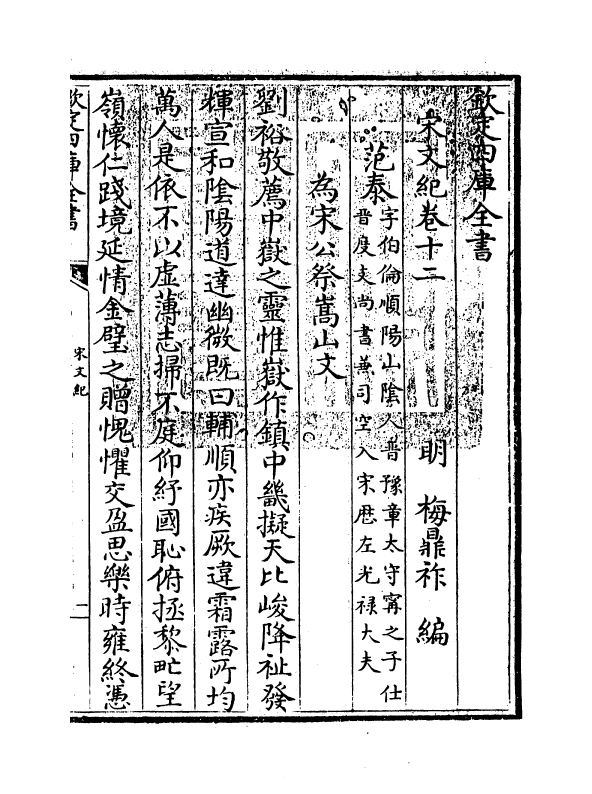 欽定四庫全書
宋文紀卷十二　明　梅鼎祚　編
范泰
字伯倫順陽山陰人晉豫章太守甯之子仕
晉度支尚書兼司空入宋歷左光祿大夫
為宋公祭嵩山文
劉裕敬薦中嶽之靈惟嶽作鎮中畿擬天比峻降祉發
輝宣和陰陽道達幽微既曰輔順亦疾厥違霜露所均
萬人是依不以虛薄志掃不庭仰紓國恥俯拯黎甿望
嶺懷仁踐境延情金璧之贈愧懼交盈思樂時雍終憑
欽定四庫全書
宋文紀
一